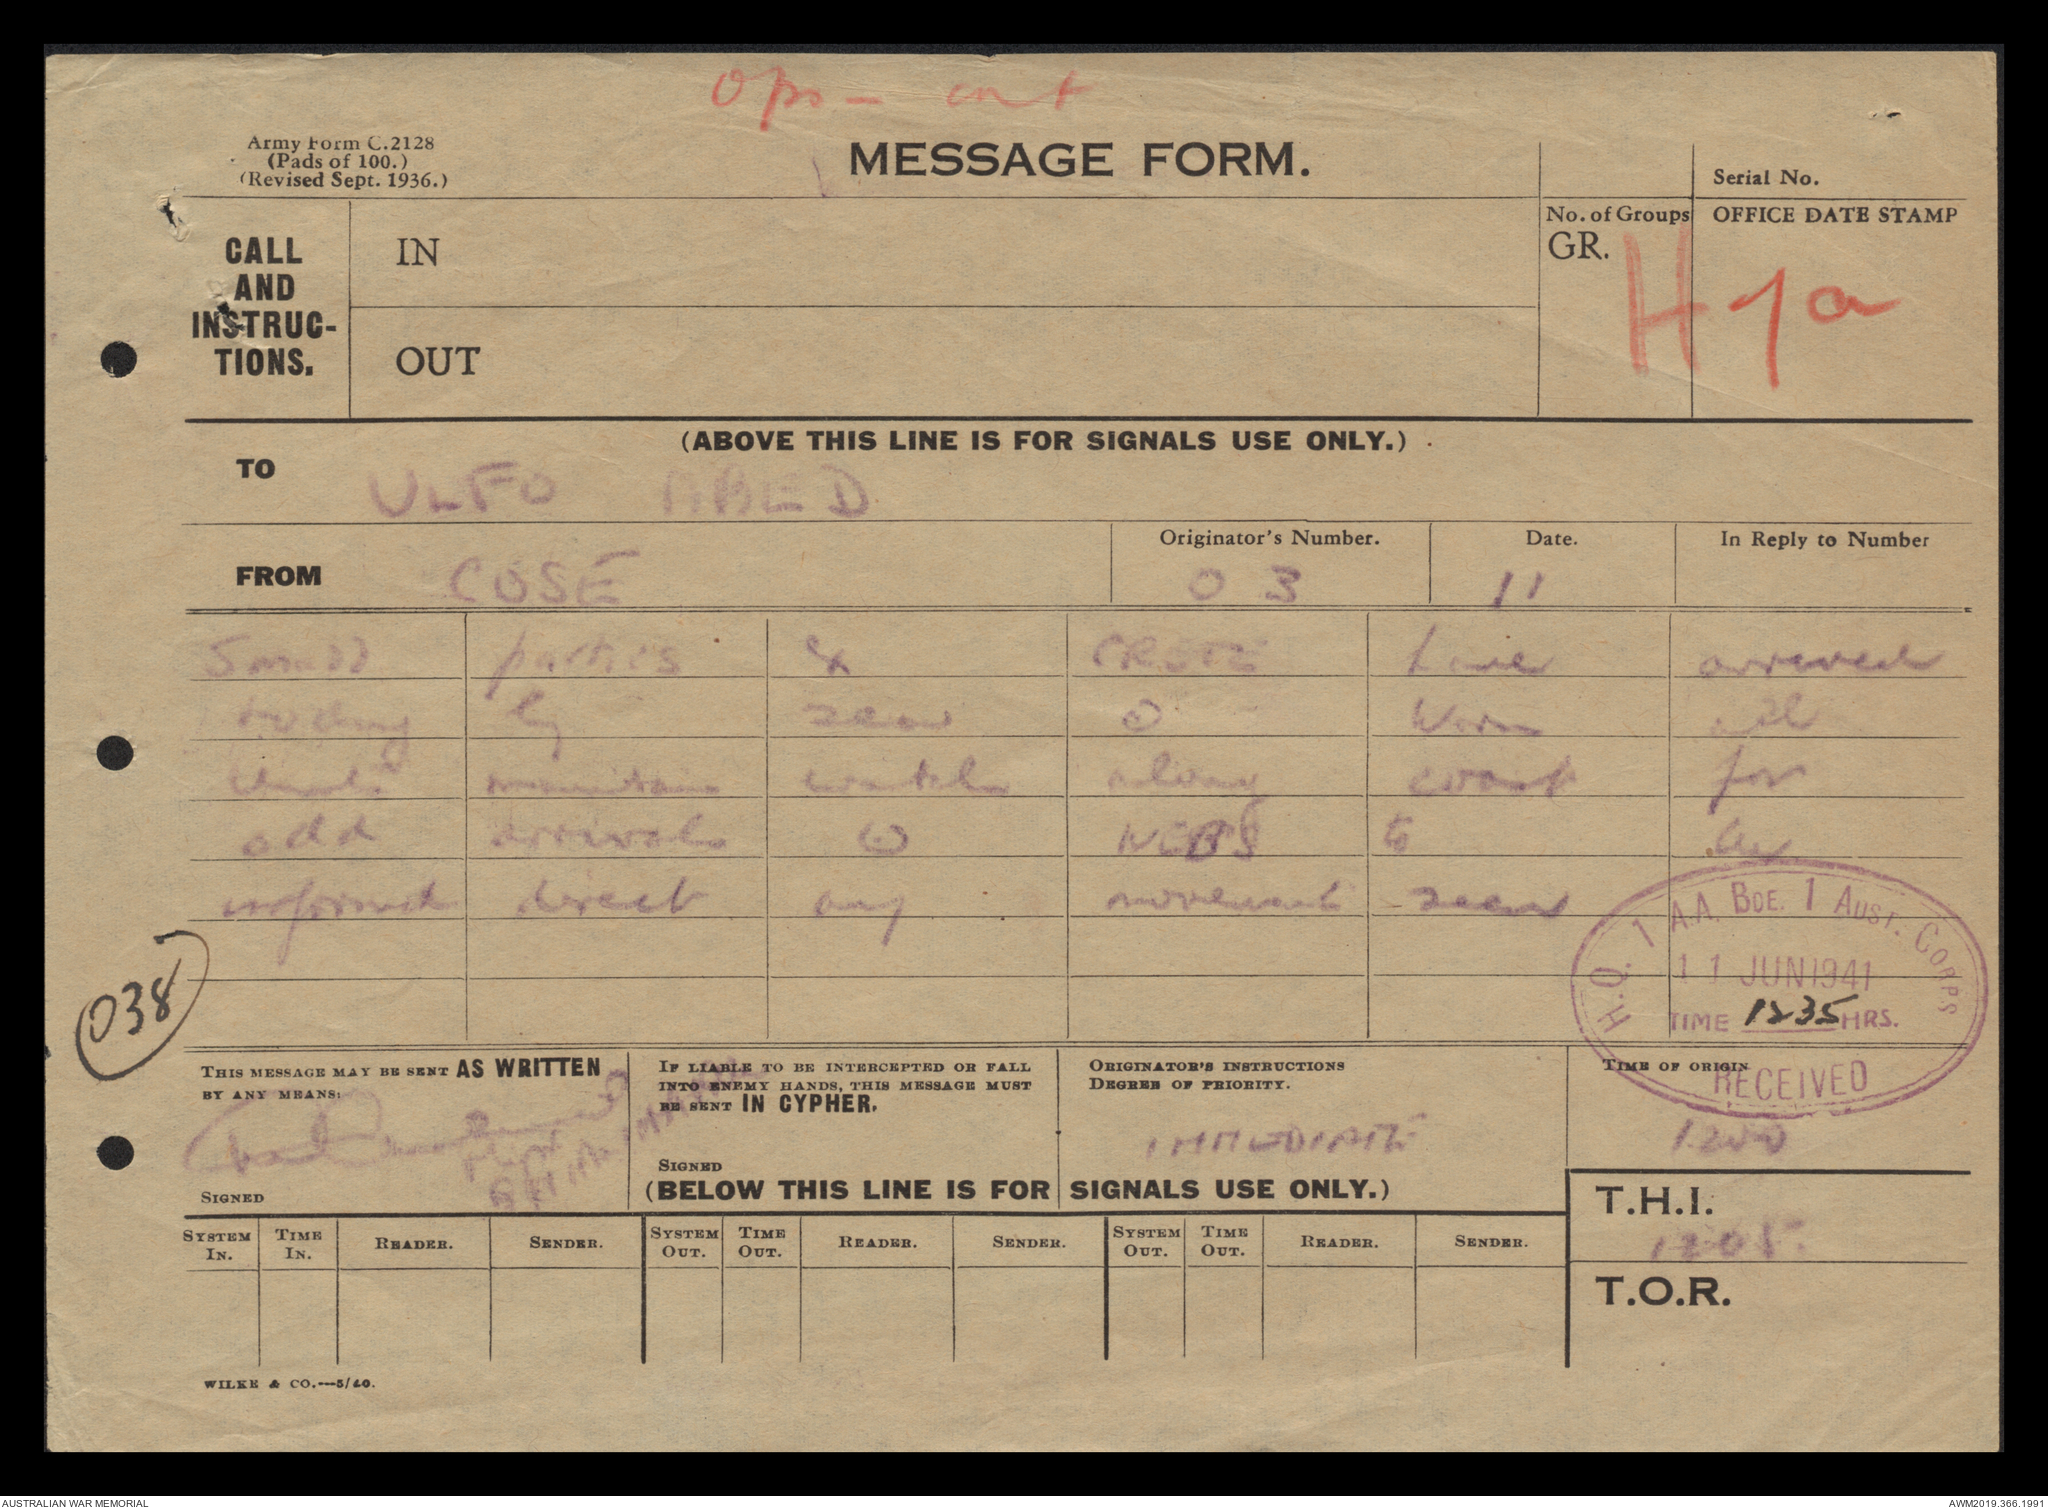 Ops - out
Army Form C.2128
(Pads of 100.)
(Revised Sept. 1936.)
MESSAGE FORM.
Serial No.
CALL
AND
INSTRUC-
TIONS.
IN
OUT
No. of Groups
GR.
OFFICE DATE STAMP
H 7a
(ABOVE THIS LINE IS FOR SIGNALS USE ONLY.)
TO ULFO ABED
FROM COSE
Originator's Number.
03
Date.
11
In Reply to Number
Small parties ex CRETE have arrived
today by sea O Warn all
units maintain watch along coast for
odd arrivals O to be
informed direct any movement seen
038
H.Q. 1 A.A. BDE. 1 AUST. CORPS
11 JUN 1941
TIME 1235 HRS.
RECEIVED
THIS MESSAGE MAY BE SENT AS WRITTEN
BY ANY MEANS:
SIGNED
IF LIABLE TO BE INTERCEPTED OR FALL
INTO ENEMY HANDS, THIS MESSAGE MUST
BE SENT IN CYPHER.
SIGNED
ORIGINATOR'S INSTRUCTIONS
DEGREE OF PRIORITY.
IMMEDIATE
TIME OF ORIGIN
1200
(BELOW THIS LINE IS FOR SIGNALS USE ONLY.)
T.H.I.
1205
T.O.R.
SYSTEM IN. TIME IN. READER. SENDER. SYSTEM OUT. TIME OUT. READER. SENDER. SYSTEM OUT. TIME OUT. READER. SENDER.
WILKE & CO.---5/40.
AUSTRALIAN WAR MEMORIAL
AWM2019.366.1991